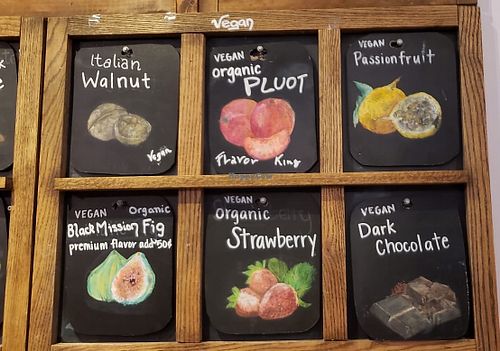 Vegan
Italian
Walnut
Vegan
VEGAN
organic
PLUOT
Flavor King
VEGAN
Passionfruit
VEGAN Organic
Black Mission Fig
premium flavor add 50¢
VEGAN
organic
Strawberry
VEGAN
Dark
Chocolate